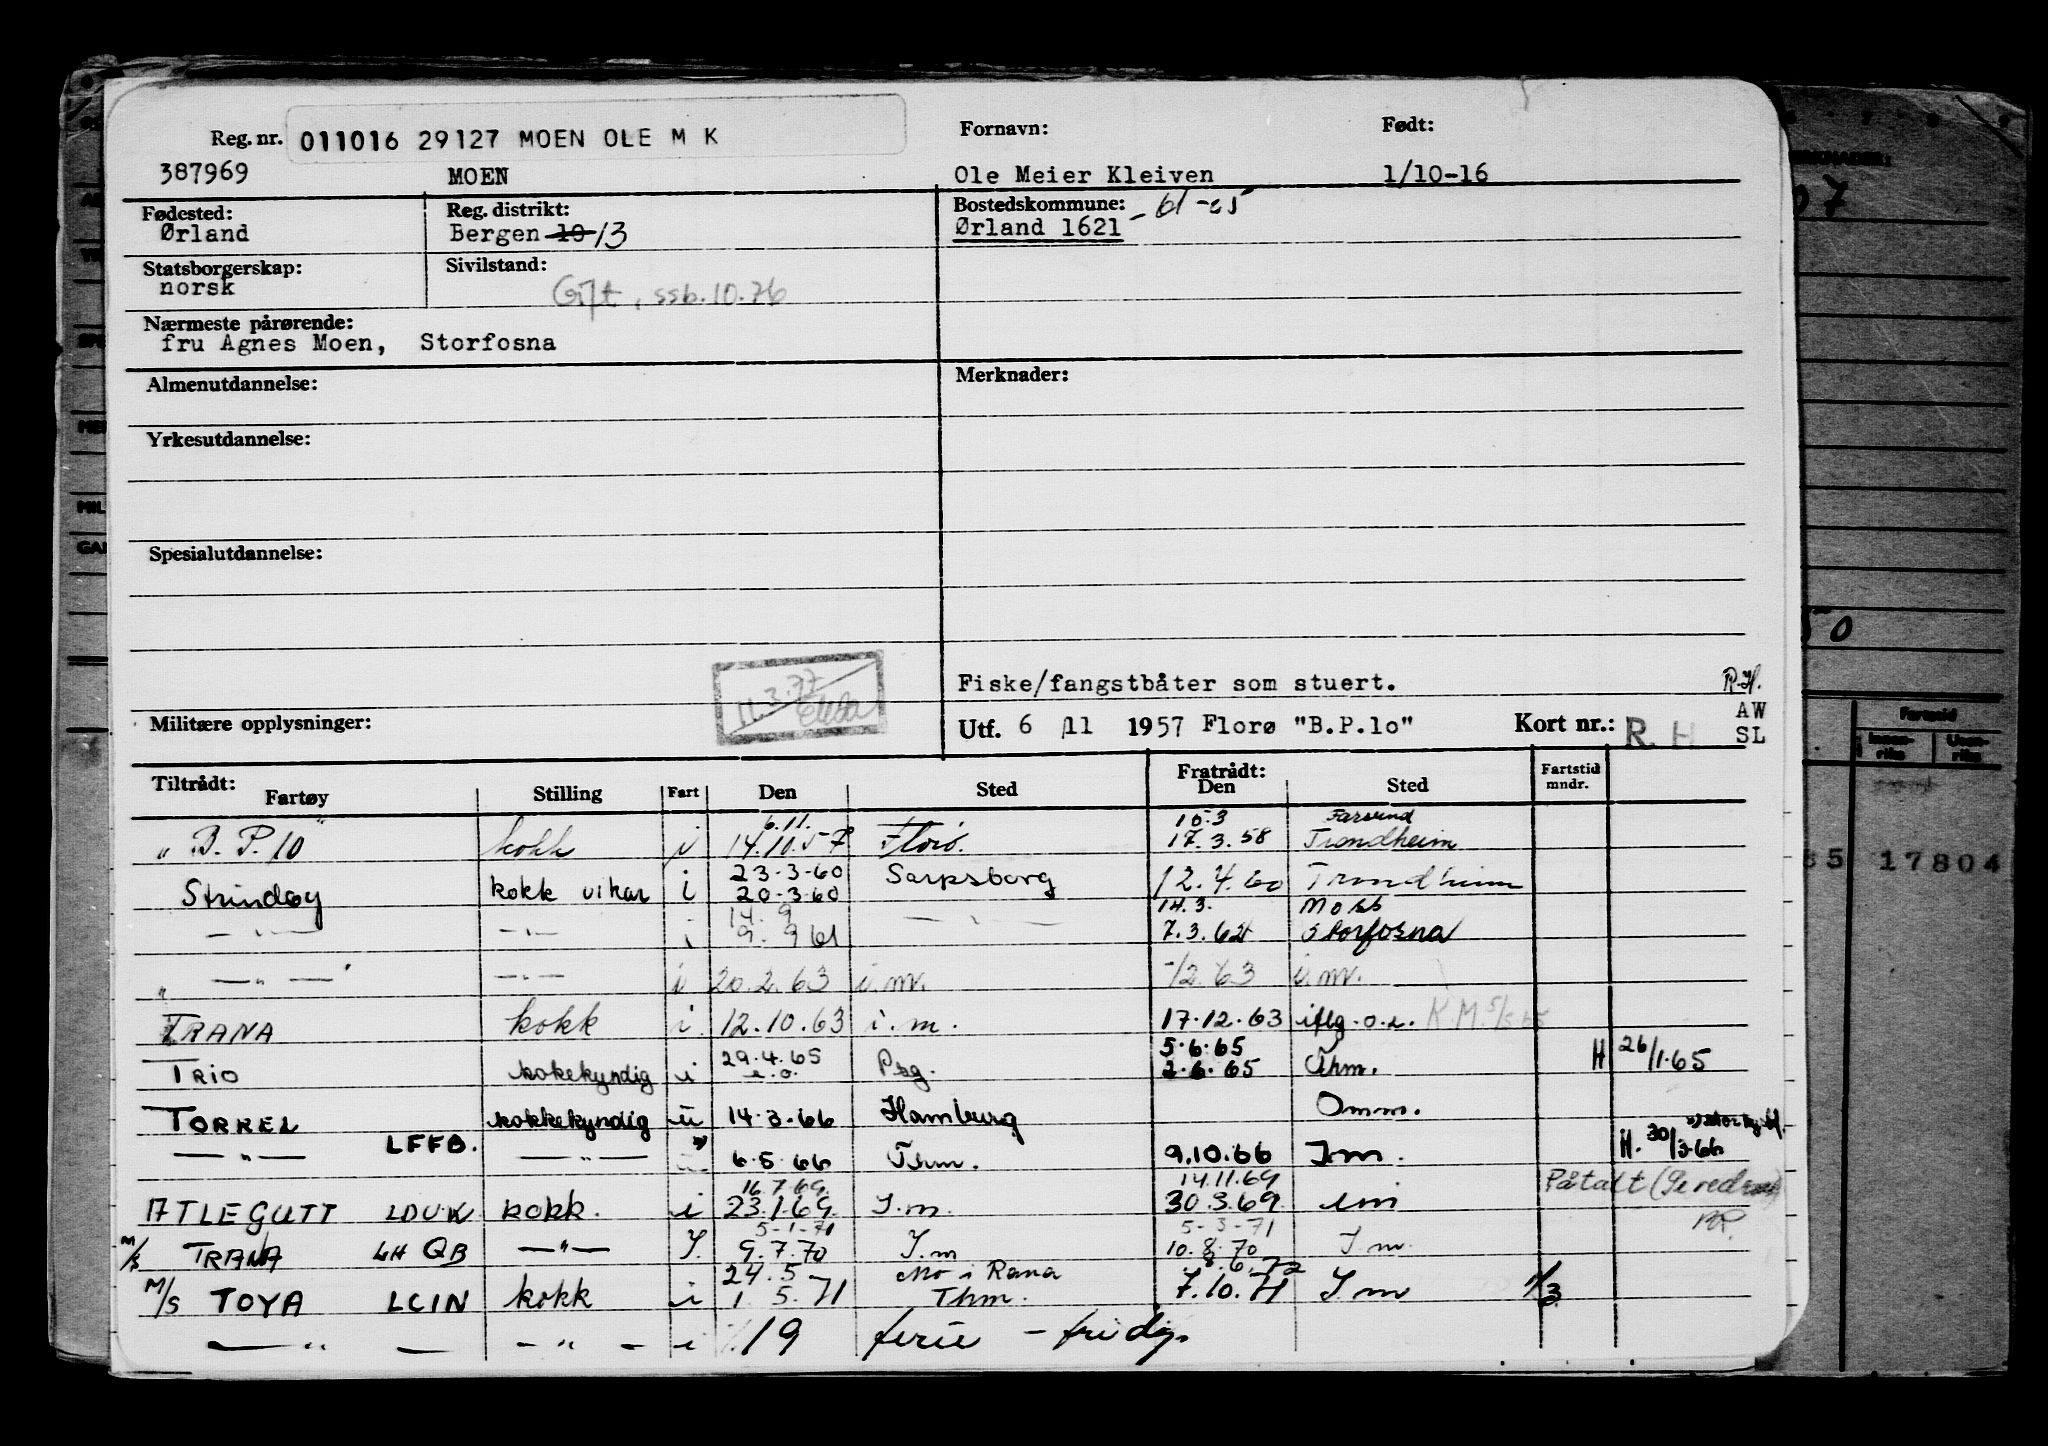 Reg. nr. 011016 29127 MOEN OLE M K Fornavn: Født:
387969 MOEN Ole Meier Kleiven 1/10-16
Fødested: Reg. distrikt: Bostedskommune:
Ørland Bergen 10 13 Ørland 1621
Statsborgerskap: Sivilstand:
norsk Gift, ssb. 10.76
Nærmeste pårørende:
fru Agnes Moen, Storfosna
Almenutdannelse: Merknader:
Yrkesutdannelse:
Spesialutdannelse:
11.3.77
Fiske/fangstbåter som stuert. R.H.
AW
Militære opplysninger: Utf. 6 /11 1957 Florø "B.P.lo" Kort nr.: R. H SL
Tiltrådt: Fartøy Stilling Fart Den Sted Fratrådt: Den Sted Fartstid mndr.
6.11. 10.3 Farsund
" B. P. 10 " kokk i 14.10.57 Florø. 17.3.58 Trondheim
23.3.60
Strindøy kokk vikar i 20.3.60 Sarpsborg 12.4.60 Trondheim
14.9 14.3. Moss
— " — — " — i 9.9 61 — " — 7.3.62 Storfosna
" — " — — " — i 20.2.63 i.m. /2 63 i.m.
TRANA kokk i. 12.10.63 i.m. 17.12.63 iflg. o.s. K.M.
29.4.65 5.6.65
TRIO kokekyndig i e.o. Psg. 2.6.65 Thm. H 26/1.65
TORKEL kokkekyndig u 14.3.66 Hamburg Omm.
— " — LFFB. — " — 6.5.66 Thm. 9.10.66 Im. H. 30/3.66
16.7.69 14.11.69 Påtalt
ATLEGUTT LDUK kokk. i 23.1.69. I.m. 30.3.69. im
5-1-71 5-3-71
M/S TRANA LHQB — " — I. 9.7.70 I.m 10.8.70 I m.
24.5 Mo i Rana 8.6.72
M/S TOYA LCIN kokk i 1.5.71 Thm. 7.10.71 I m 1/3
— " — — " — i 19 ferie - fridg.
Fartstid
Innenriks Utenriks
07
50
35 17804